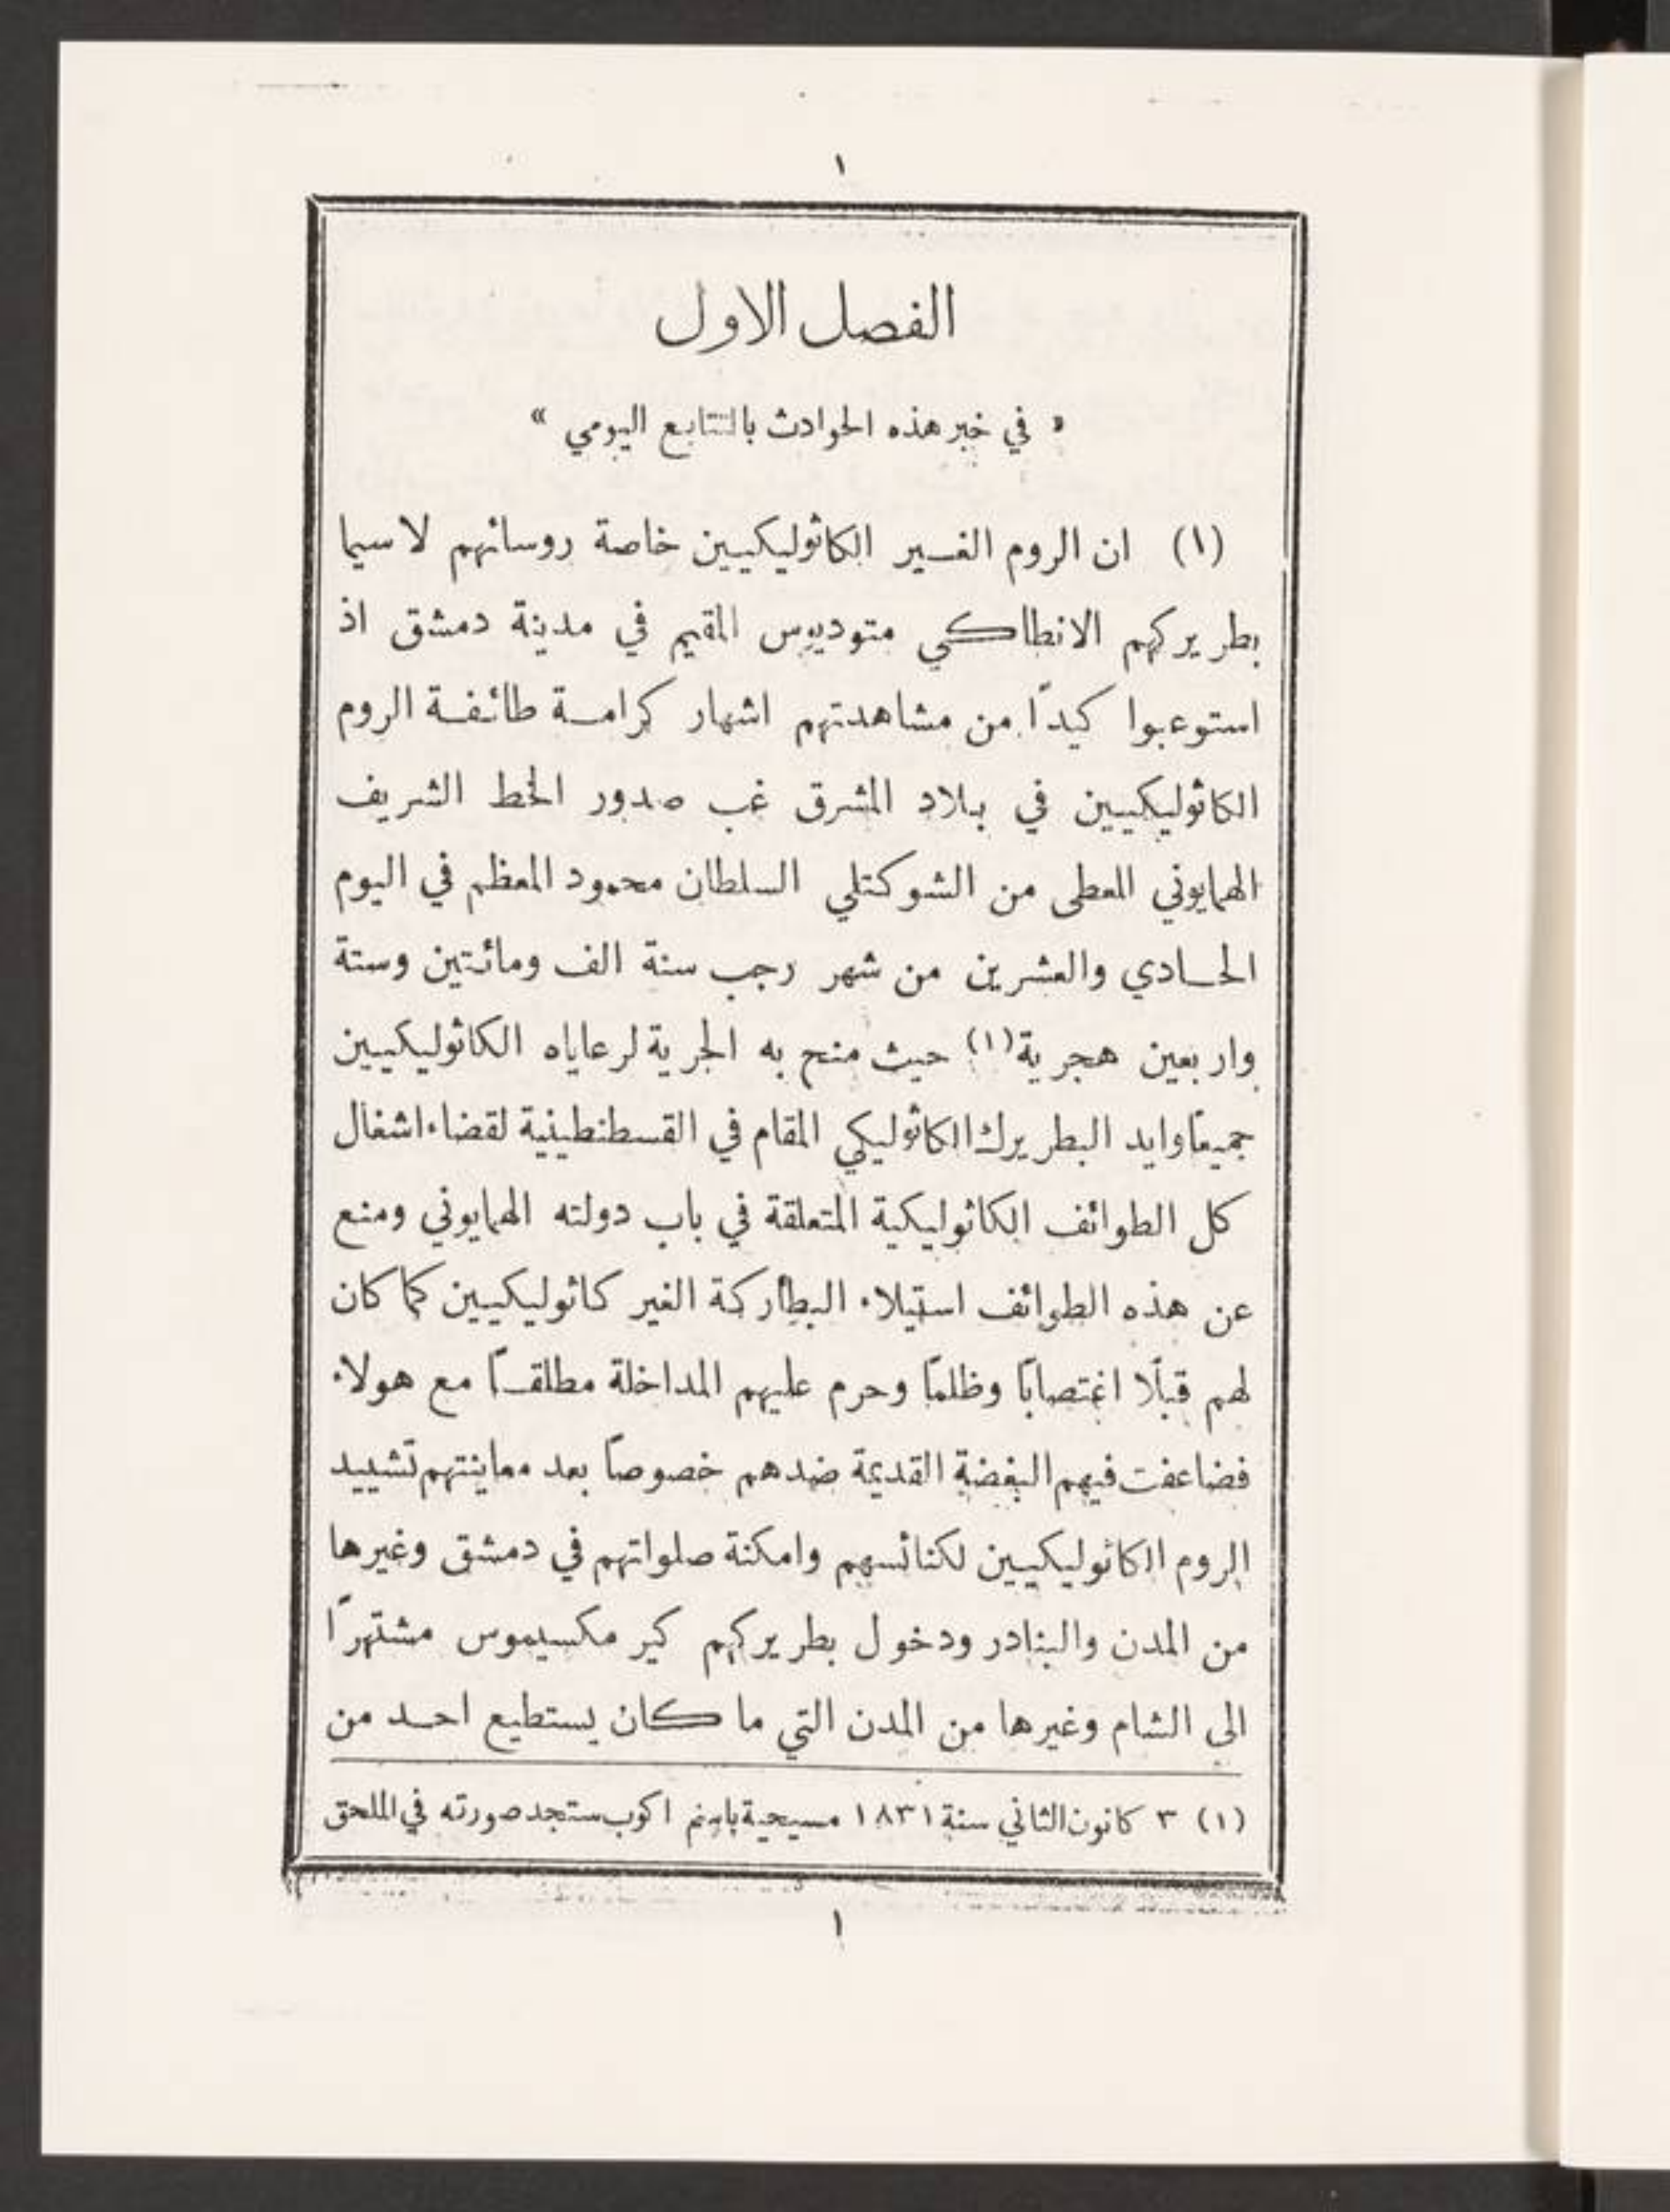 ١
الفصل الاول
« في خبر هذه الحوادث بالتتابع اليومي »
(١) ان الروم الغير الكاثوليكيين خاصة روسائهم لاسيما
بطريركهم الانطاكي متوديوس المقيم في مدينة دمشق اذ
استوعبوا كيدًا من مشاهدتهم اشهار كرامة طائفة الروم
الكاثوليكيين في بلاد المشرق غب صدور الخط الشريف
الهمايوني المعطى من الشوكتلي السلطان محمود المعظم في اليوم
الحادي والعشرين من شهر رجب سنة الف ومائتين وستة
واربعين هجرية(١) حيث منح به الحرية لرعاياه الكاثوليكيين
جميعًا وايد البطريرك الكاثوليكي المقام في القسطنطينية لقضاء اشغال
كل الطوائف الكاثوليكية المتعلقة في باب دولته الهمايوني ومنع
عن هذه الطوائف استيلاء البطاركة الغير كاثوليكيين كما كان
لهم قبلًا اغتصابًا وظلمًا وحرم عليهم المداخلة مطلقًا مع هولاء
فضاعفت فيهم البغضة القديمة ضدهم خصوصًا بعد معاينتهم تشييد
الروم الكاثوليكيين لكنائسهم وامكنة صلواتهم في دمشق وغيرها
من المدن والبنادر ودخول بطريركهم كير مكسيموس مشتهرًا
الى الشام وغيرها من المدن التي ما كان يستطيع احد من
(١) ٣ كانون الثاني سنة ١٨٣١ مسيحية ستجد صورته في الملحق
١